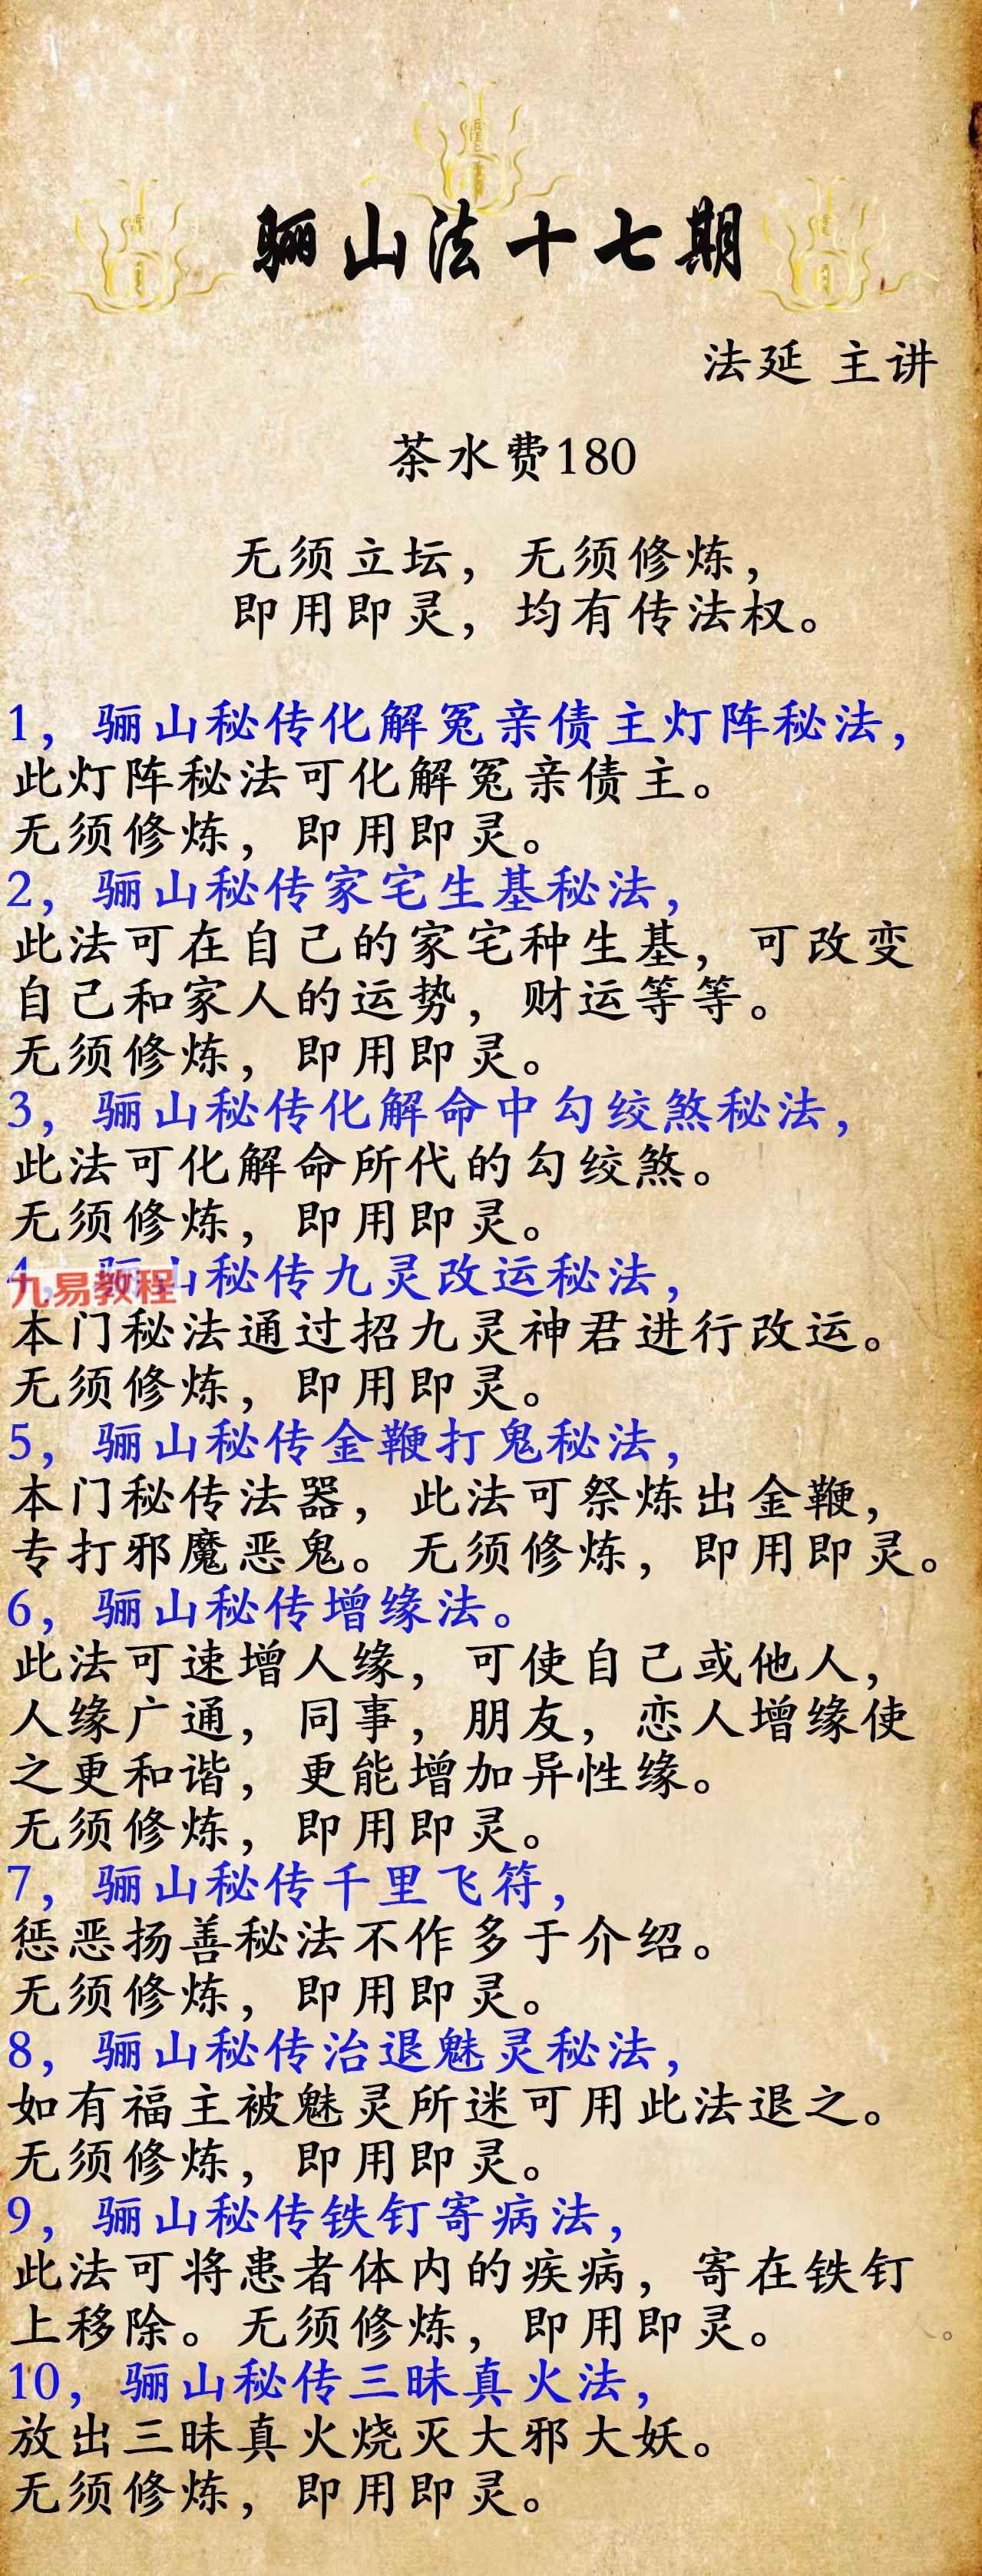 骊山法十七期
法延 主讲
茶水费180
无须立坛，无须修炼，
即用即灵，均有传法权。
1，骊山秘传化解冤亲债主灯阵秘法，
此灯阵秘法可化解冤亲债主。
无须修炼，即用即灵。
2，骊山秘传家宅生基秘法，
此法可在自己的家宅种生基，可改变
自己和家人的运势，财运等等。
无须修炼，即用即灵。
3，骊山秘传化解命中勾绞煞秘法，
此法可化解命所代的勾绞煞。
无须修炼，即用即灵。
4，骊山秘传九灵改运秘法，
九易教程
本门秘法通过招九灵神君进行改运。
无须修炼，即用即灵。
5，骊山秘传金鞭打鬼秘法，
本门秘传法器，此法可祭炼出金鞭，
专打邪魔恶鬼。无须修炼，即用即灵。
6，骊山秘传增缘法。
此法可速增人缘，可使自己或他人，
人缘广通，同事，朋友，恋人增缘使
之更和谐，更能增加异性缘。
无须修炼，即用即灵。
7，骊山秘传千里飞符，
惩恶扬善秘法不作多于介绍。
无须修炼，即用即灵。
8，骊山秘传治退魅灵秘法，
如有福主被魅灵所迷可用此法退之。
无须修炼，即用即灵。
9，骊山秘传铁钉寄病法，
此法可将患者体内的疾病，寄在铁钉
上移除。无须修炼，即用即灵。
10，骊山秘传三昧真火法，
放出三昧真火烧灭大邪大妖。
无须修炼，即用即灵。